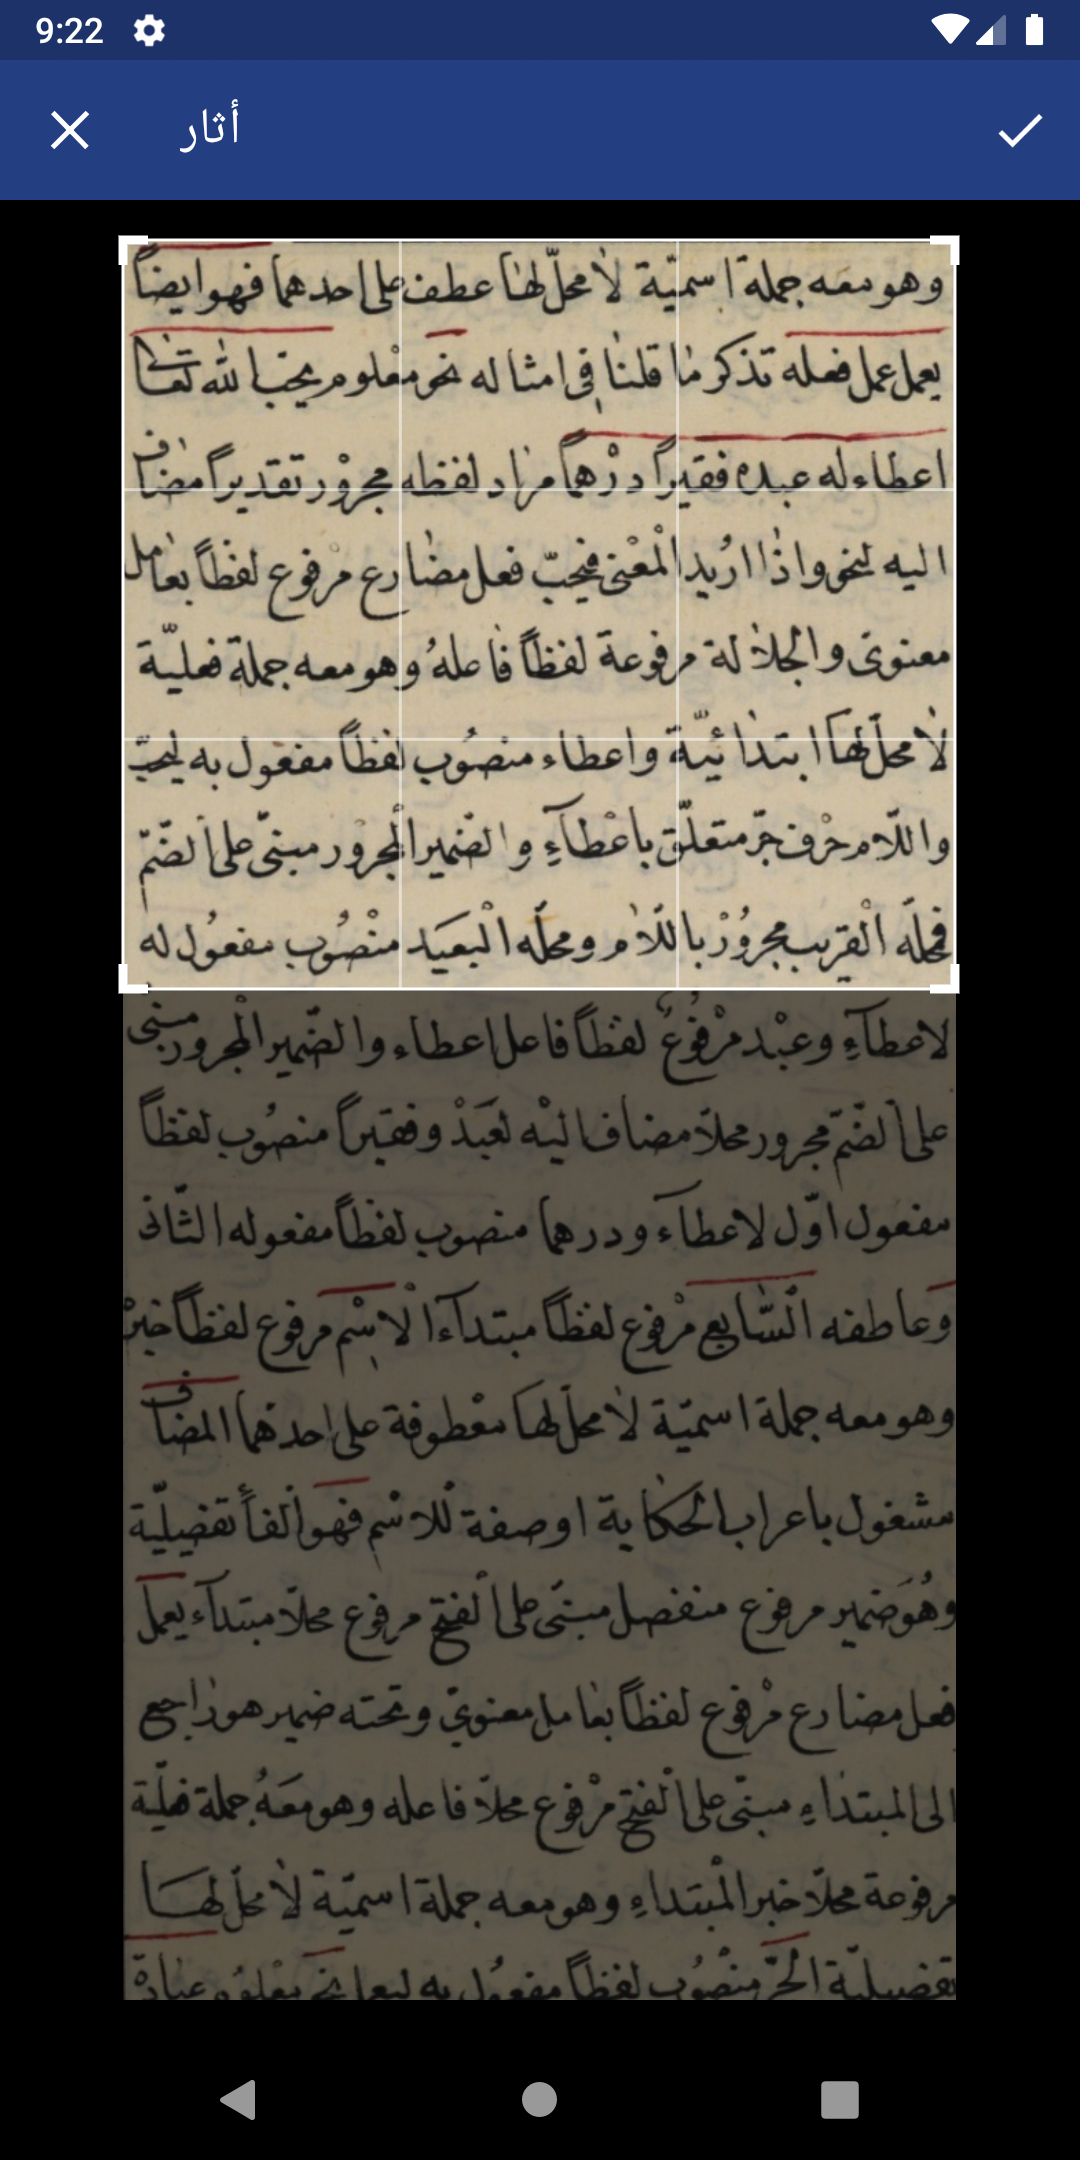 9:22
أثار
وهو معه جملة اسميّة لا محلّ لها عطف على احدهما فهو ايضاً
يعمل عمل فعله تذكر ما قلنا فى امثاله نحو معلوم يحبّ الله تعالى
اعطاء له عبده فقيراً درْهماً مراد لفظه مجرور تقديراً مضاف
اليه لنحو واذا اريد المعْنى فيحبّ فعل مضارع مرفوع لفظاً بعامل
معنوى والجلالة مرفوعة لفظاً فاعلهُ وهو معه جملة فعليّة
لا محلّ لها ابتدائيّة واعطاء منصُوب لفظاً مفعول به ليحبّ
واللّام حرْف جرّ متعلّق باعْطآءِ والضّمير المجرور مبنىّ على الضّمّ
فمحلّه الْقريب مجروُرْ باللّام ومحلّه الْبعيَد منْصُوب مفعوُل له
لاعطآءِ وعبْد مرْفوُعٌ لفظاً فاعل اعطاء والضّمير المجرور مبنى
على الضّمّ مجرور محلاّ مضاف اليْه لعَبدْ وفقيراً منصُوب لفظاً
مفعول اوّل لاعطآء ودرهما منصوب لفظاً مفعوله الثّانى
وعاطفه السّابع مرْفوع لفظاً مبتدآء الْاسْم مرفوع لفظاً خبرْ
وهو معه جملة اسميّة لا محلّ لها معْطوفة على احدهما المضاف
مشغول باعراب الحكاية او صفة للاسْم فهو الْفأ تفضيليّة
وهُوَ ضمير مرفوع منفصل مبنىّ على الْفتح مرفوع محلاّ مبتدآء يعمل
فعل مضارع مرْفوع لفظاً بعامل معنوىّ وتحته ضمير هو راجع
الى المبتداءِ مبنىّ على الْفتح مرْفوع محلاّ فاعله وهو معَهُ جملة فعليّة
مرفوعة محلاّ خبر المْبتداءِ وهو معه جملة اسميّة لا محلّ لهَا
تفضيليّة منْصُوب لفظاً مفعوُل به